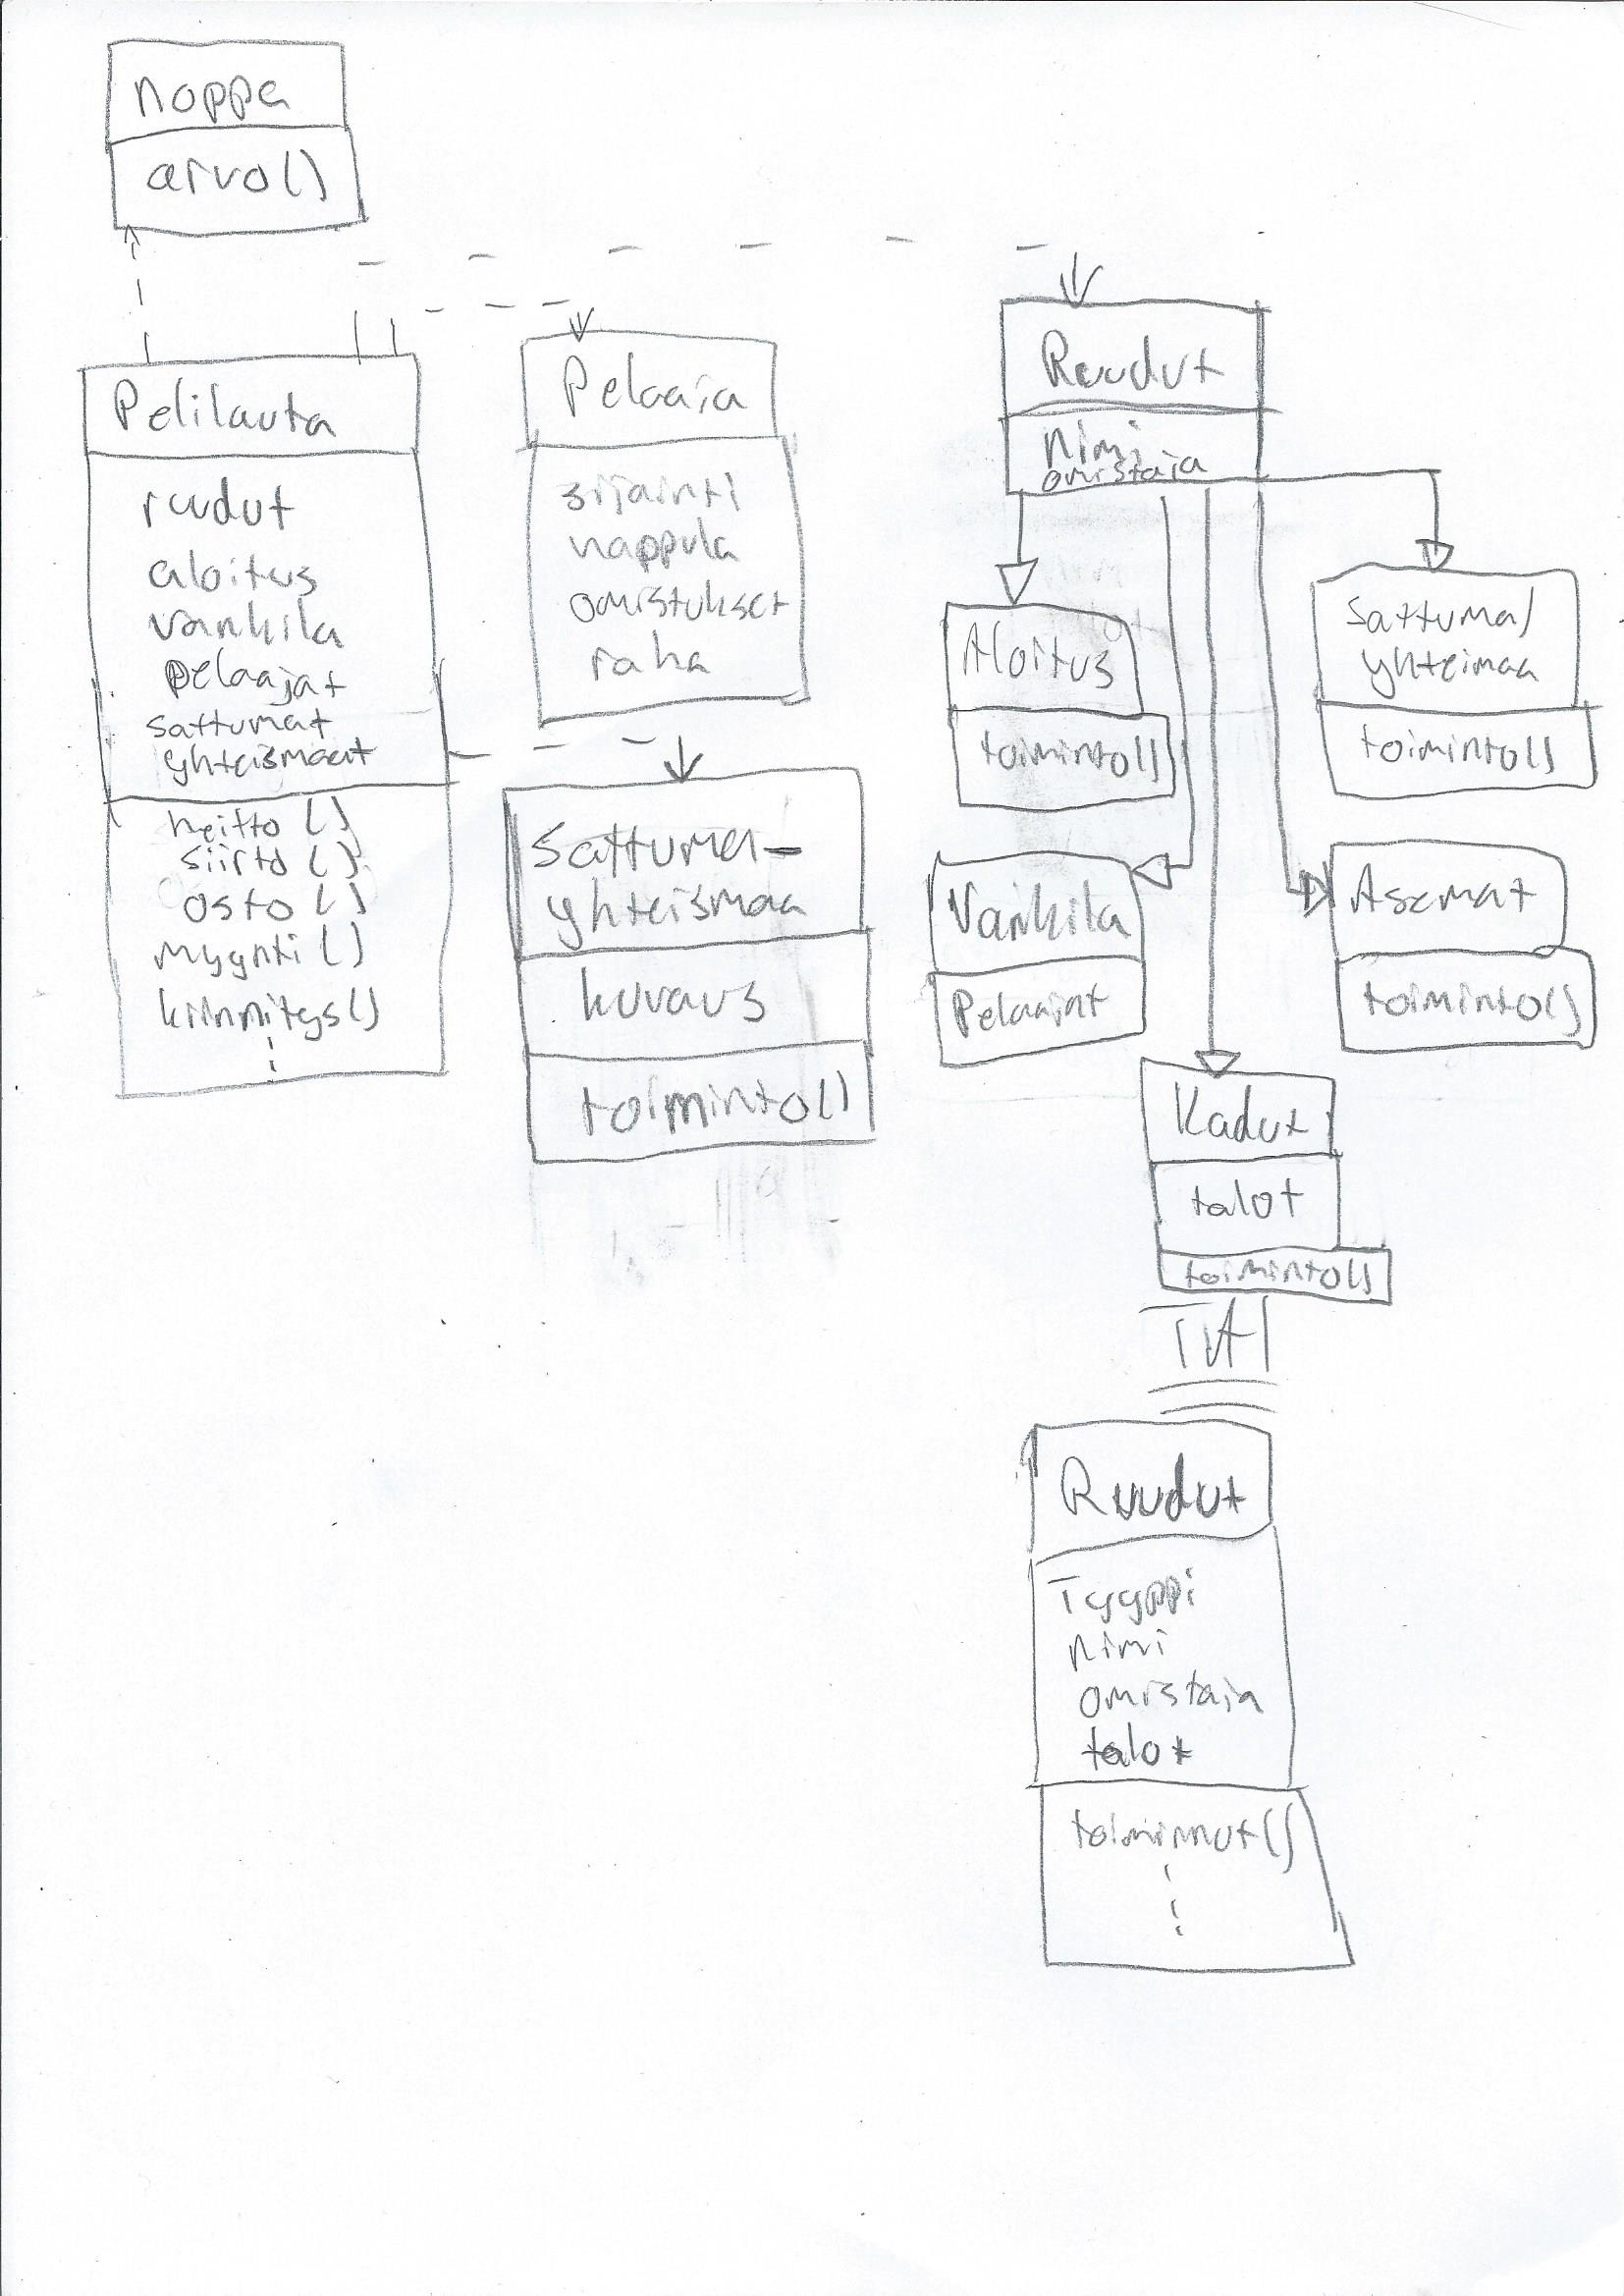 noppa
arvo()
Pelilauta
ruudut
aloitus
vankila
pelaajat
sattumat
yhteismaat
heitto ()
siirto ()
osto ()
myynti ()
kiinnitys()
Pelaaja
sijainti
nappula
omistukset
raha
Sattuma-
yhteismaa
kuvaus
toiminto()
Ruudut
nimi
omistaja
Aloitus
toiminto()
Sattuma/
yhteimaa
toiminto()
Vankila
Pelaajat
Asemat
toiminto()
Kadut
talot
toiminto()
TAI
Ruudut
Tyyppi
nimi
omistaja
talot
toiminnut()